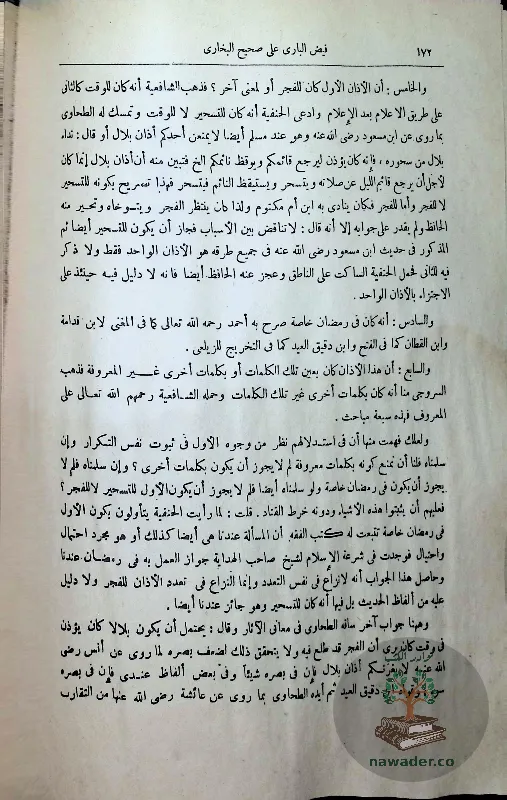 ١٧٢
فيض البارى على صحيح البخارى
والخامس : أن الأذان الأول كان للفجر أو لمعنى آخر ؟ فذهب الشافعية أنه كان للوقت كالثانى
على طريق الاعلام بعد الإعلام وادعى الحنفية أنه كان للتسحير لا للوقت وتمسك له الطحاوى
بما روى عن ابن مسعود رضى الله عنه وهو عند مسلم أيضا لايمنعن أحدكم أذان بلال أو قال : نداء
بلال من سحوره ، فإنه كان يؤذن ليرجع قائمكم ويوقظ نائمكم الخ فتبين منه أن أذان بلال إنما كان
لأجل أن يرجع قائم الليل عن صلاته ويتسحر ويستيقظ النائم فيتسحر فهذا تصريح بكونه للتسحير
لا للفجر وأما للفجر فكان ينادى به ابن أم مكتوم ولذا كان ينتظر الفجر ويتوخاه وتحير منه
الحافظ ولم يقدر على جوابه إلا أنه قال : لا تناقض بين الأسباب فجاز أن يكون للتسحير أيضا ثم
المذكور فى حديث ابن مسعود رضى الله عنه فى جميع طرقه هو الأذان الواحد فقط ولا ذكر
فيه للثانى فحمل الحنفية الساكت على الناطق وعجز عنه الحافظ أيضا فانه لا دليل فيه حينئذ على
الاجتزاء بالأذان الواحد .
والسادس : أنه كان فى رمضان خاصة صرح به أحمد رحمه الله تعالى كما فى المغنى لابن قدامة
وابن القطان كذا فى الفتح وابن دقيق العيد كما فى التخريج للزيلعى .
والسابع : أن هذا الأذان كان بعين تلك الكلمات أو بكلمات أخرى غير المعروفة فذهب
السروجى منا أنه كان بكلمات أخرى غير تلك الكلمات وحمله الشافعية رحمهم الله تعالى على
المعروف فهذه سبعة مباحث .
ولعلك فهمت منها أن فى استدلالهم نظر من وجوه الأول فى ثبوت نفس التكرار وإن
سلمناه فلنا أن نمنع كونه بكلمات معروفة لم لايجوز أن يكون بكلمات أخرى ؟ وإن سلمناه فلم لا
يجوز أن يكون فى رمضان خاصة ولو سلمناه أيضا فلم لا يجوز أن يكون الأول للتسحير لا للفجر ؟
فعليهم أن يثبتوا هذه الأشياء ودونه خرط القتاد . قلت : لما رأيت الحنفية يتأولون بكون الأول
فى رمضان خاصة تتبعت له كتب الفقه أن المسألة عندنا هى أيضا كذلك أو هو مجرد احتمال
واحتيال فوجدت فى شرعة الإسلام لشيخ صاحب الهداية جواز العمل به فى رمضان عندنا
وحاصل هذا الجواب أنه لانزاع فى نفس التعدد وإنما النزاع فى تعدد الأذان للفجر ولا دليل
عليه من ألفاظ الحديث بل فيها أنه كان للتسحير وهو جائز عندنا أيضا .
وههنا جواب آخر ساقه الطحاوى فى معانى الآثار وقال : يحتمل أن يكون بلالا كان يؤذن
فى وقت كان يرى أن الفجر قد طلع فيه ولا يتحقق ذلك لضعف بصره لما روى عن أنس رضى
الله عنه لا يغرنكم أذان بلال فإن فى بصره شيئا وفى بعض ألفاظ عندى فإن فى بصره
دقيق العيد ثم أيده الطحاوى بما روى عن عائشة رضى الله عنها من التقارب
نوادر الكتب
nawader.co